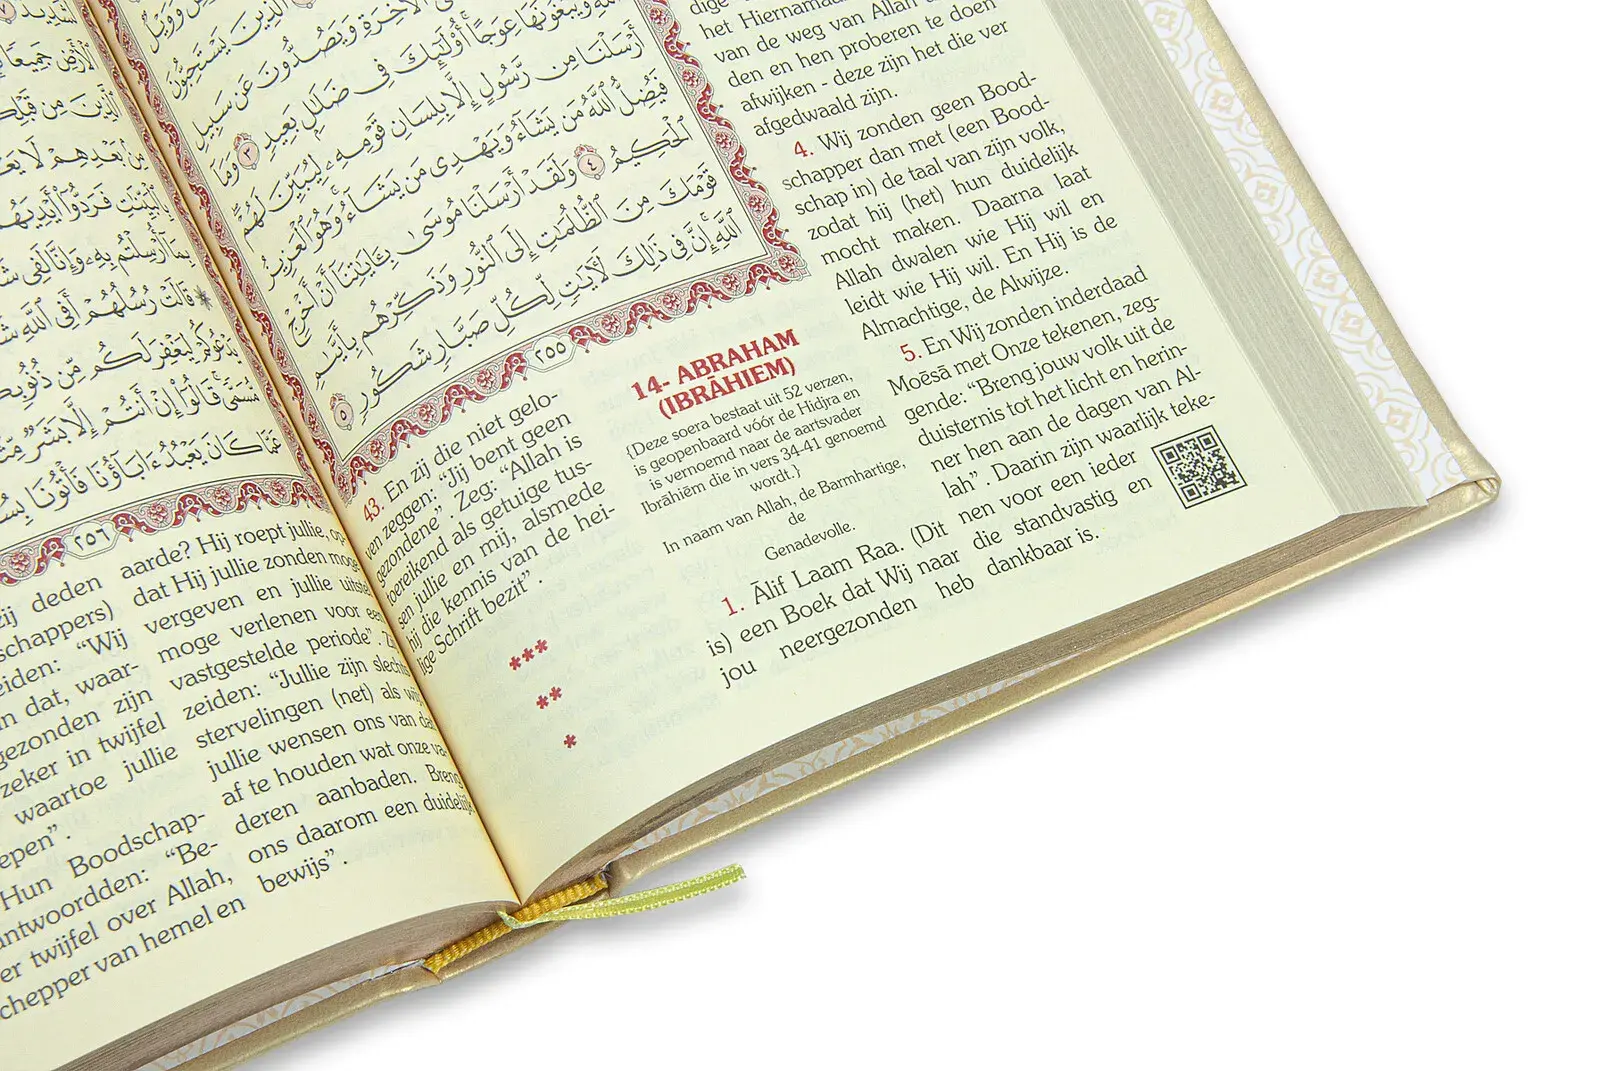 الْأَرْضِ جَمِيعًا
الَّذِينَ مِن قَبْلِكُ
مِنۢ بَعْدِهِمْ لَا يَعْ
فَرَدُّوٓا۟ أَيْدِيَهُمْ
بِمَآ أُرْسِلْتُم بِهِۦ وَإِنَّا لَفِى شَ
قَالَتْ رُسُلُهُمْ أَفِى ٱللَّهِ شَ
يَدْعُوكُمْ لِيَغْفِرَ لَكُم مِّن ذُنُوبِكُ
مُّسَمًّى ۚ قَالُوٓا۟ إِنْ أَنتُمْ إِلَّا بَشَرٌ مِّثْ
عَمَّا كَانَ يَعْبُدُ ءَابَآؤُنَا فَأْتُونَا بِسُ
٢٥٦
zij deden aarde? Hij roept jullie, op-
schappers) dat Hij jullie zonden moge
eiden: “Wij vergeven en jullie uitstel
n dat, waar- moge verlenen voor een
gezonden zijn vastgestelde periode”. Zij
zeker in twijfel zeiden: “Jullie zijn slechts
waartoe jullie stervelingen (net) als wij
epen”. jullie wensen ons van dat
Hun Boodschap- af te houden wat onze va-
antwoordden: “Be- deren aanbaden. Breng
er twijfel over Allah, ons daarom een duidelijk
chepper van hemel en bewijs”.
ٱلَّذِينَ يَسْتَحِبُّونَ
ٱلْءَاخِرَةِ وَيَصُدُّونَ عَن سَبِيلِ
ٱللَّهِ وَيَبْغُونَهَا عِوَجًا ۚ أُو۟لَـٰٓئِكَ فِى ضَلَـٰلٍۭ بَعِيدٍ ٣ وَمَآ
أَرْسَلْنَا مِن رَّسُولٍ إِلَّا بِلِسَانِ قَوْمِهِۦ لِيُبَيِّنَ لَهُمْ ۖ
فَيُضِلُّ ٱللَّهُ مَن يَشَآءُ وَيَهْدِى مَن يَشَآءُ ۚ وَهُوَ ٱلْعَزِيزُ
ٱلْحَكِيمُ ٤ وَلَقَدْ أَرْسَلْنَا مُوسَىٰ بِـَٔايَـٰتِنَآ أَنْ أَخْرِجْ
قَوْمَكَ مِنَ ٱلظُّلُمَـٰتِ إِلَى ٱلنُّورِ وَذَكِّرْهُم بِأَيَّىٰمِ
ٱللَّهِ ۚ إِنَّ فِى ذَٰلِكَ لَـَٔايَـٰتٍ لِّكُلِّ صَبَّارٍ شَكُورٍ ٥
٢٥٥
43. En zij die niet gelo-
ven zeggen: “Jij bent geen
gezondene”. Zeg: “Allah is
toereikend als getuige tus-
sen jullie en mij, alsmede
hij die kennis van de hei-
lige Schrift bezit”.
***
**
*
14- ABRAHAM
(IBRĀHIEM)
{Deze soera bestaat uit 52 verzen,
is geopenbaard vóór de Hidjra en
is vernoemd naar de aartsvader
Ibrāhiēm die in vers 34-41 genoemd
wordt.}
In naam van Allah, de Barmhartige,
de
Genadevolle.
1. Ālif Laam Raa. (Dit
is) een Boek dat Wij naar
jou neergezonden heb
dige
het Hiernamaa
van de weg van Allah a
den en hen proberen te doen
afwijken - deze zijn het die ver
afgedwaald zijn.
4. Wij zonden geen Bood-
schapper dan met (een Bood-
schap in) de taal van zijn volk,
zodat hij (het) hun duidelijk
mocht maken. Daarna laat
Allah dwalen wie Hij wil en
leidt wie Hij wil. En Hij is de
Almachtige, de Alwijze.
5. En Wij zonden inderdaad
Moēsā met Onze tekenen, zeg-
gende: “Breng jouw volk uit de
duisternis tot het licht en herin-
ner hen aan de dagen van Al-
lah”. Daarin zijn waarlijk teke-
nen voor een ieder
die standvastig en
dankbaar is.